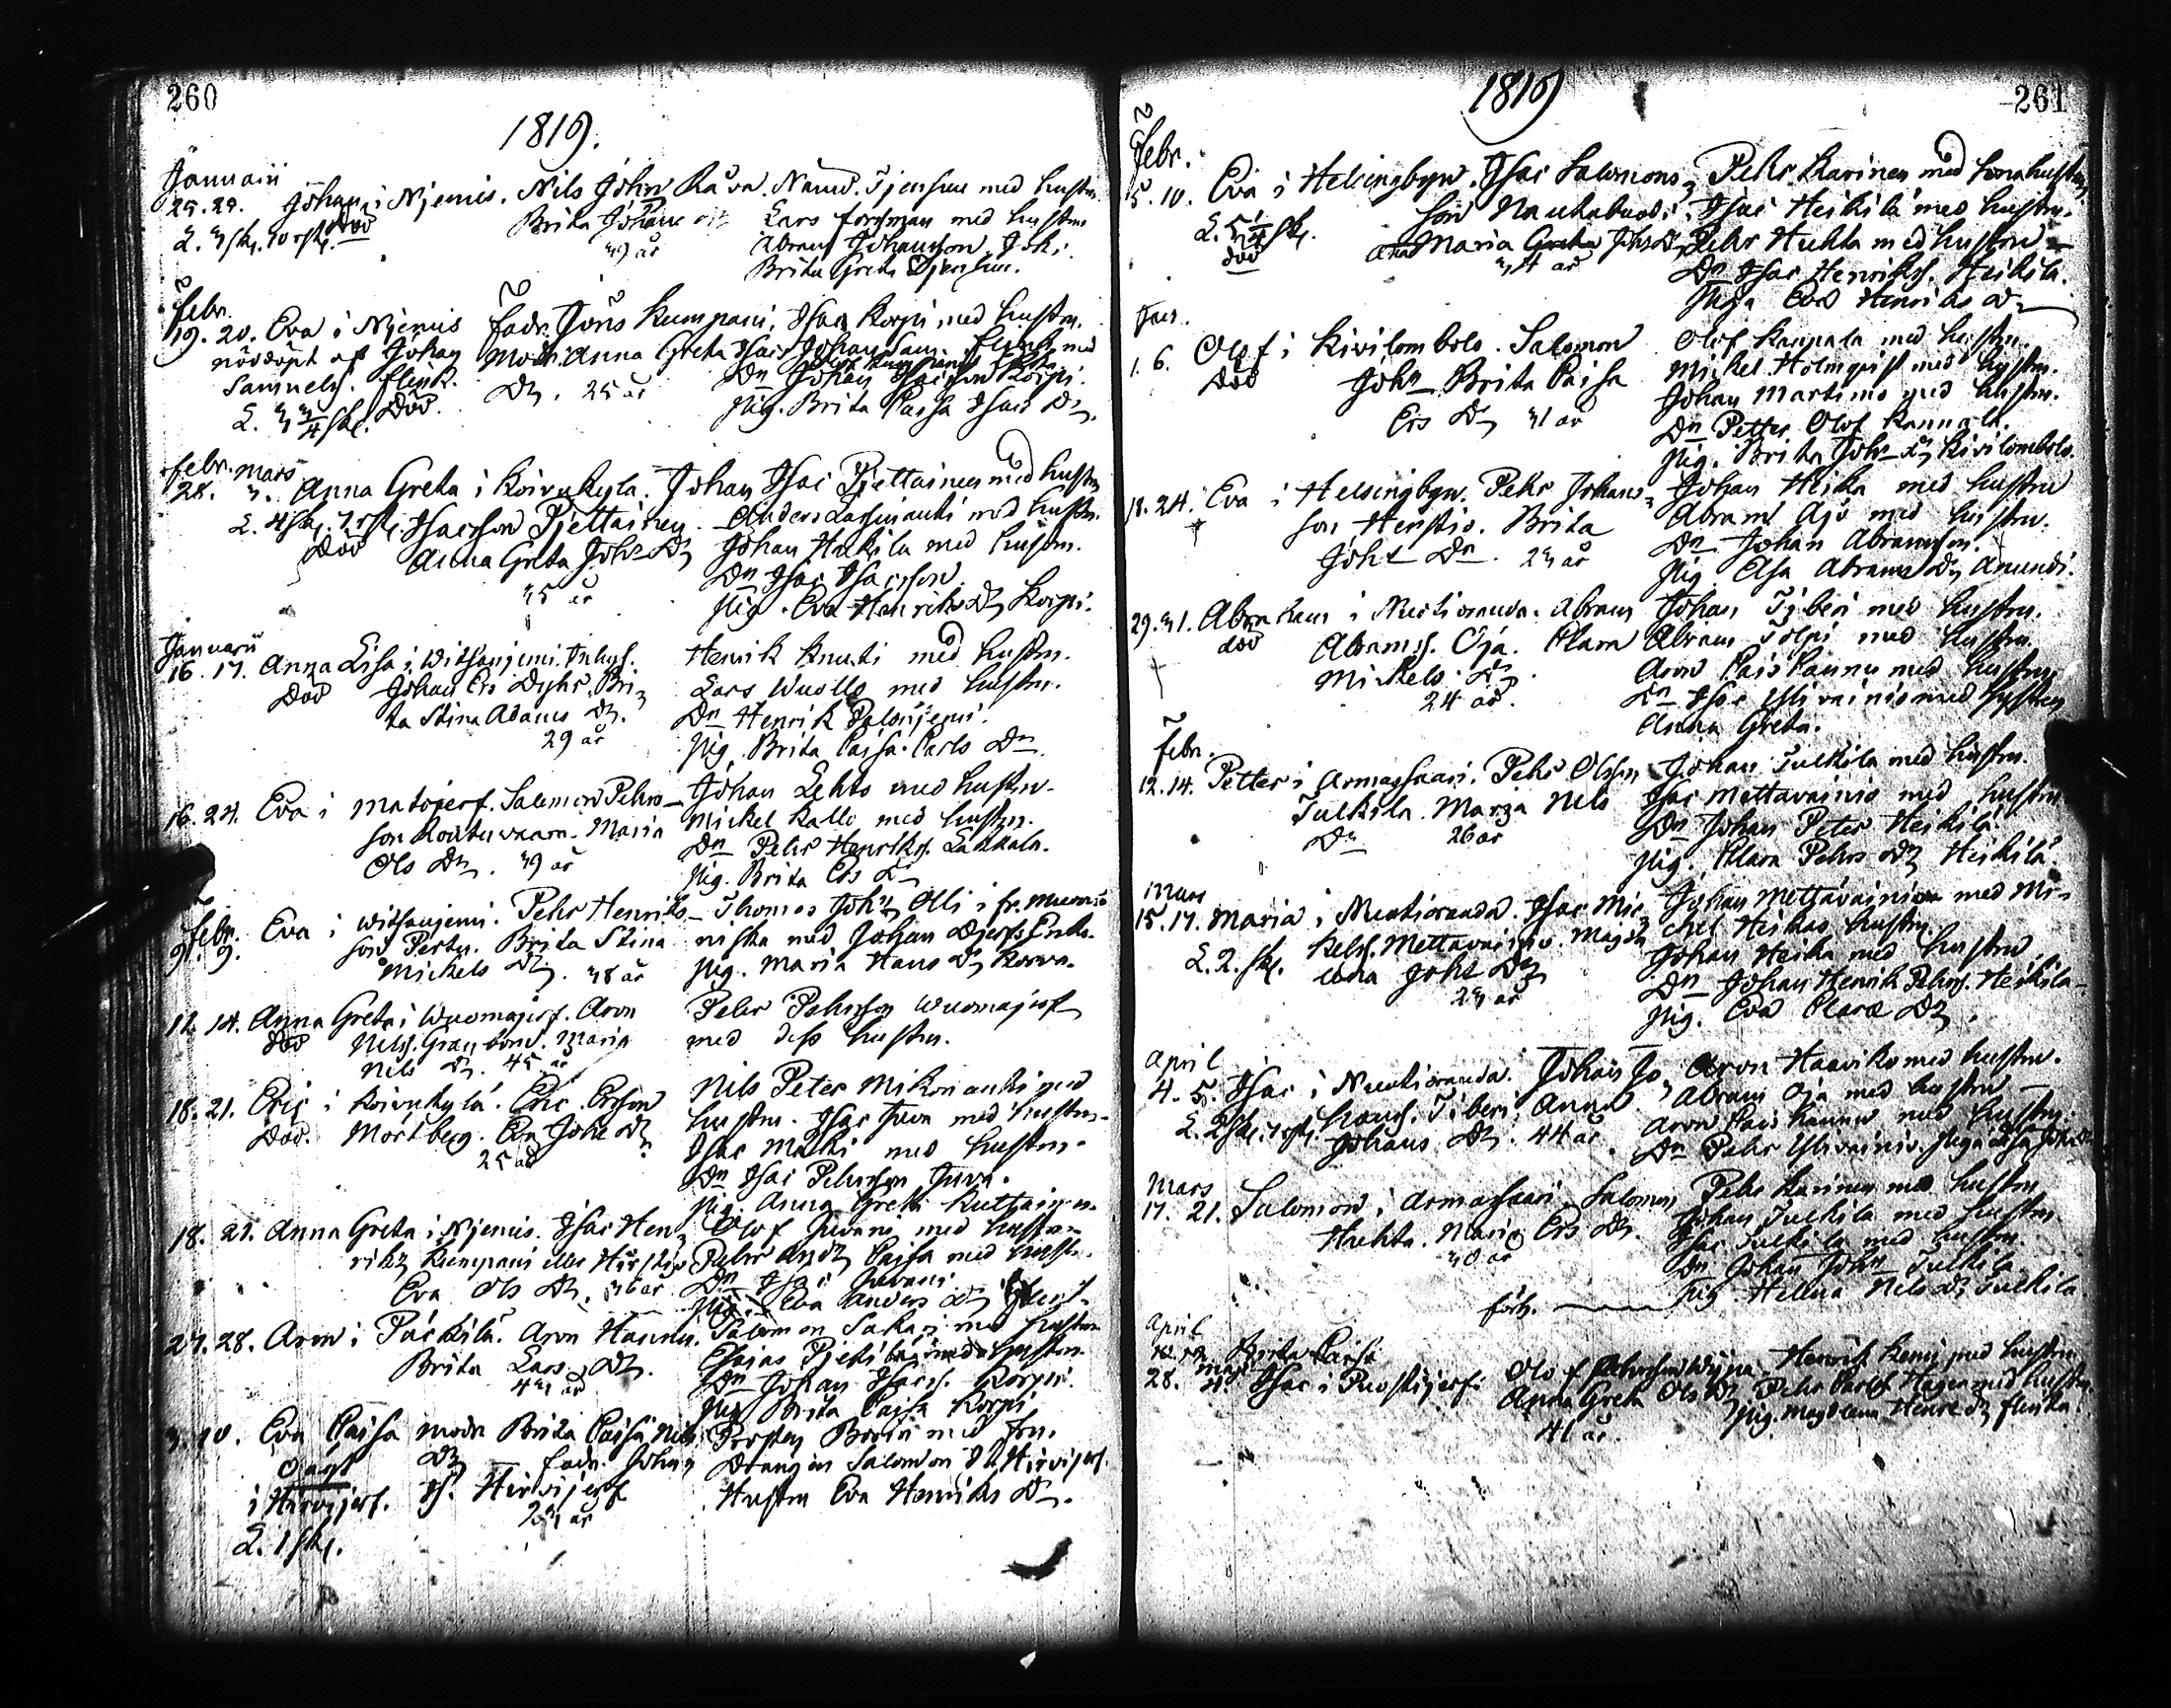 260
1819.
Januarii
29. 29. Johan i Njemis. Nils John Råva. Nämd. Tjensuu med hustru
2. 3 sk. 10 rst. död Brita Johans Lars Forsman med hustru
39 år Abram Johansson Joki
Brita Greta Tjensuu.
Febr.
19. 20. Eva i Njemis Fadr. Jöns Kumpani, Isac Korpi med hustru.
nöddöpt af Johan Modr. Anna Greta Isacs Johan Sam. Flink med
Samuels. Flink. Dr. 25 år Dn Johan Isacsson Korpi.
2. 3 3/4 sk. Död. Pig. Brita Caisa Isacs Dr.
Febr. Mars
28. 3. Anna Greta i Koivukyla. Johan Isac Pjettainen med hustru
2. 4 sk. 7 rst. Isacsson Pjettainen Anders Lassinantti med hustru.
Död Anna Greta Johs Dr Johan Heikila med hustru.
35 år Dn Isac Isacsson
Pig. Eva Henriks Dr Korpi.
Januarii
16. 17. Anna Lisa i Witsanjemi. Inhys. Henrik Knuuti med hustru.
Död Johan Ers Dyhr. Bri- Lars Wuollo med hustru.
ta Stina Adams Dr. Dn Henrik Palonjemi.
29 år Pig. Brita Cajsa Carls Dr
16. 24. Eva i Matojerf. Salomon Pehrs- Johan Lehto med hustru.
son Koutuvaara. Maria Mickel Kallo med hustru.
Ols Dr. 39 år Dn Pehr Henriks. Lakkala.
Pig. Brita Ers Dr
Febr. Eva i Witsanjemi. Pehr Henriks- Thomas Johs Olli i fr. Muonio
9. 9. son Pertu. Brita Stina niska med Johan Djerfs Enka.
Mickels Dr. 38 år Pig. Maria Hans Dr Korva.
12. 14. Anna Greta i Wuomajerf. Aron Pehr Pehrsson Wuomajerf
död Nels. Granbom. Maria med dess hustru.
Nils Dr. 45 år
18. 21. Eric i Koivukylä. Eric Ersson Nils Peter Mikonantti med
Död. Mörtberg. Eva Johs Dr hustru. Isac Juva med hustru.
25 år Isac Matki med hustru.
Dn Isac Pehrsson Juva.
Pig. Anna Greta Kuttainen.
18. 21. Anna Greta i Njemis. Isac Hen- Olof Juvani med hustru
riks Kumpani eller Hirstio Pehr Ands Caisa med hustru.
Eva Ols Dr. 36 år Dn Isac Juvani
Pig. Eva Anders Dr
27. 28. Aron i Päckilä. Aron Hannu. Salomon Sakari med hustru
Brita Lars Dr. Esaias Pjekilä med hustru.
43 år Dn Johan Isacs. Korpi.
Pig Brita Caisa Korpi
3. 10. Eva Caisa modr Brita Caisa Nels Prosten med Fru.
Oägt Dr fadr. Johan Drängen Salomon Is. Hirvijerf.
i Hirvijerf. Is. Hirvijerf Hustru Eva Henriks Dr.
23 år
2. 1 sk.
1819
261
Febr.
5. 10. Eva i Helsingbyn. Isac Salomons- Pehr Karinen med hustru
2. 5 1/4 sk. son Nautabuodi. Isac Heikilä med hustru.
död Maria Greta Johs Dr Pehr Huhta med hustru
34 år Dn Isac Henriks. Heikila.
Piga Eva Henriks Dr
Jan.
1. 6. Olof i Kivilombolo. Salomon Olof Kannala med hustru.
Död Johs Brita Caisa Mickel Holmqvist med hustru.
Ers Dr 31 år Johan Martimo med hustru.
Dn Petter Olof Kannala.
Pig. Brita Johs Dr Kivilombolo.
18. 24. Eva i Helsingbyn. Pehr Johans- Johan Heika med hustru
son Henstio. Brita Abram Ajo med hustru.
Johs Dr. 23 år Dn Johan Abramsson.
Pig. Elsa Abrams Dr Anundi.
29. 31. Abraham i Nuotioranda. Abram Johan Tiberi med hustru.
död Abrams. Oja. Clara Abram Tolpi med hustru.
Mickels Dr. Aron Pais Kannu med hustru
24 år. Dn Isac Ylivainio med Systern
Anna Greta.
Febr.
12. 14. Petter i Armassaari. Pehr Olsson Johan Tulkila med hustru.
Tulkila. Marja Nels Isac Mettavainio med hustru
Dr 26 år Dn Johan Peter Heikilä.
Pig. Clara Pehrs Dr Heikilä.
Mars
15. 17. Maria i Nuotioranda. Isac Mic- Johan Mettävainio med Mi-
2. 2. sk. kels. Mettavainio. Magda- chel Heikas hustru.
lena Johs Dr Johan Heika med hustru
23 år Dn Johan Henrik Pehrs. Heikila
Pig. Eva Clara Dr.
April
4. 5. Isac i Nuotioranda. Johan Jo- Aron Haaviko med hustru.
2. 2 sk. 7 rst. hans. Tiberi. Anna Abram Oja med hustru
Johans Dr. 44 år Aron Pais Kannu med hustru.
Dn Pehr Ylivainio. Piga Lisa Johs Dr
Mars
17. 21. Salomon i Armassaari. Salomon Pehr Karinen med hustru
Huhta. Maria Ers Dr. Johan Tulkila med hustru.
40 år Isac Tulkila med hustru
Dn Johan Johs Tulkila
förh. Pig Helena Nels Dr Tulkila.
April
Brita Caisa
28. Maj 4. Isac i Puostijerf. Olof Pehrsson Wijna Henrik Kemi med hustru
Anna Greta Ols Dr Pehr Carls. Hagen med hustru.
41 år. Pig. Magdalena Henrs Dr Flinka.